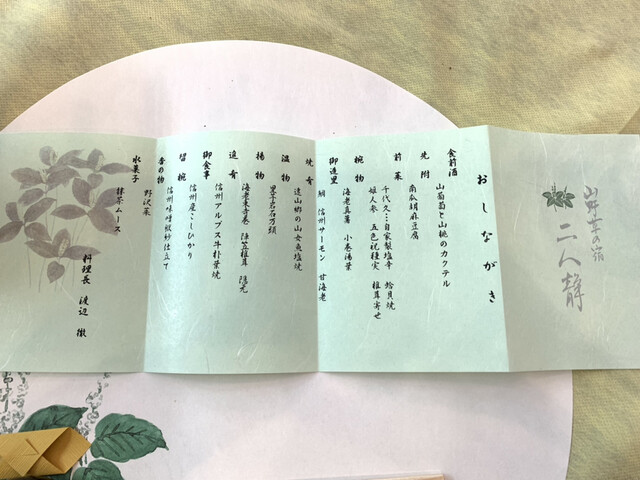 山野草の宿
二人静
おしながき
食前酒
山葡萄と山桃のカクテル
先附
南瓜胡麻豆腐
前菜
千代久…自家製塩辛 蛤貝焼
姫人参 五色祝種実 椎茸寄せ
椀物
海老真薯 小巻湯葉
御造里
鯛 信州サーモン 甘海老
焼肴
遠山郷の山女魚塩焼
温物
里芋岩石万頭
揚物
海老東寺巻 陣笠椎茸 隠元
進肴
信州アルプス牛朴葉焼
御食事
信州産こしひかり
留椀
信州味噌袱紗仕立て
香の物
野沢菜
水菓子
抹茶ムース
料理長 渡辺 徹